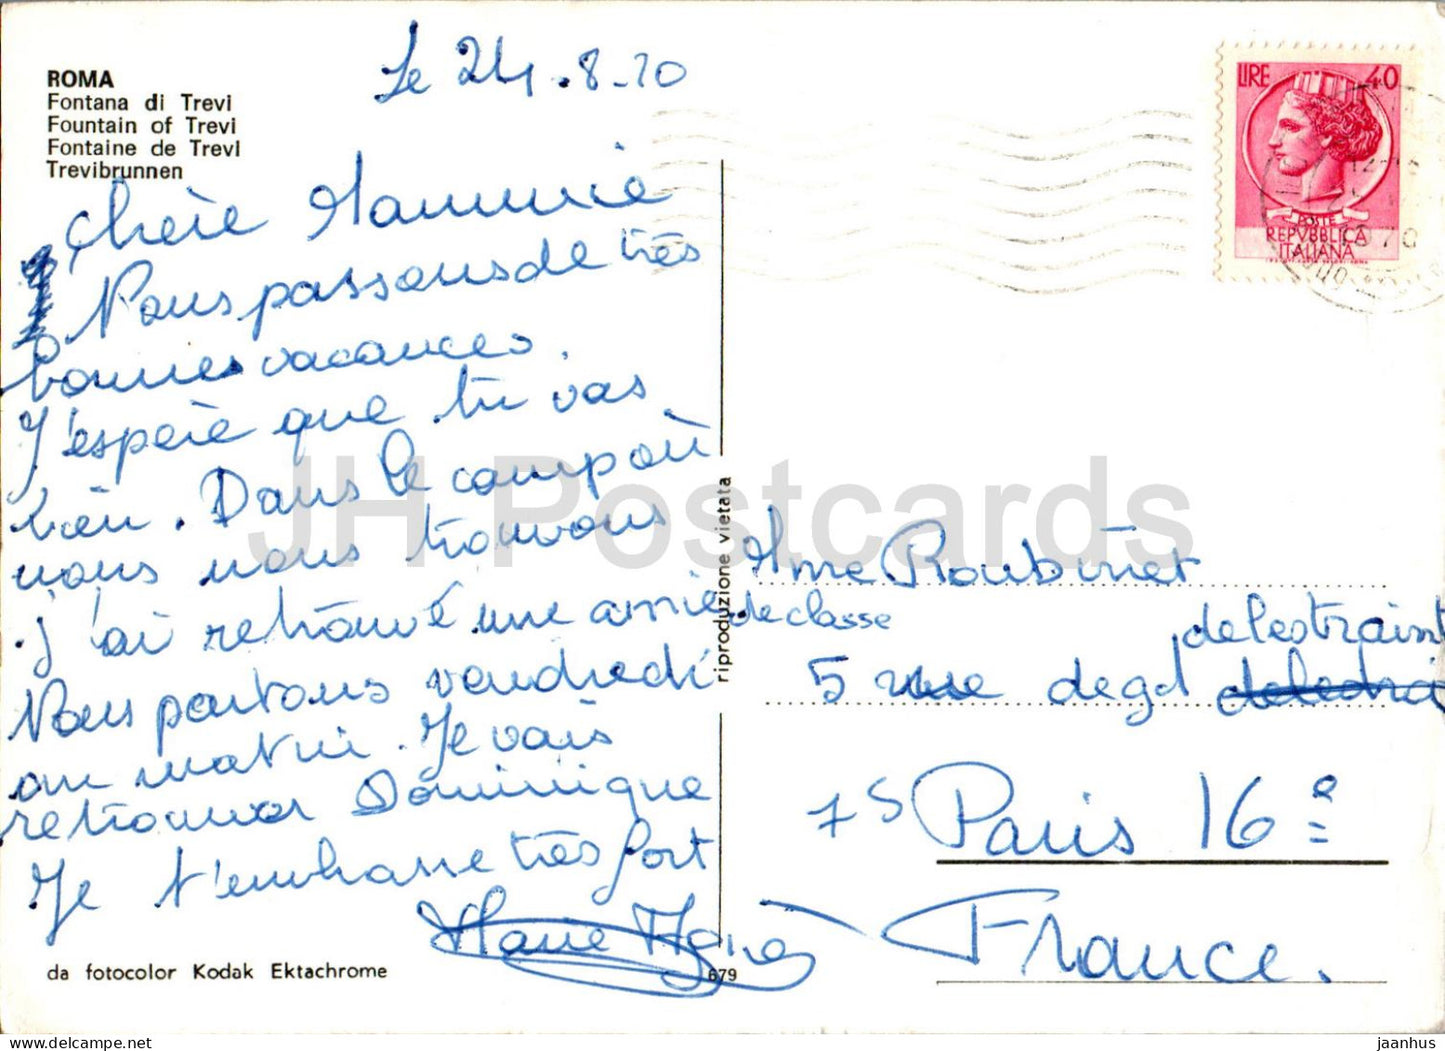 ROMA
Fontana di Trevi
Fountain of Trevi
Fontaine de Trevi
Trevibrunnen
Le 24.8.70
Chère Mammie
Nous passons de très
bonnes vacances.
J'espère que tu vas
bien. Dans le camp où
nous nous trouvons
j'ai retrouvé une amie
de classe
Nous partons vendredi
au matin. Je vais
retrouver Dominique
Je t'embrasse très fort
Marie
da fotocolor Kodak Ektachrome
679
riproduzione vietata
LIRE 40
POSTE
REPVBBLICA
ITALIANA
Mme Roubinet
5 rue de gal delestraint
75 Paris 16e
France.
JH Postcards
delcampe.net
jaanhus